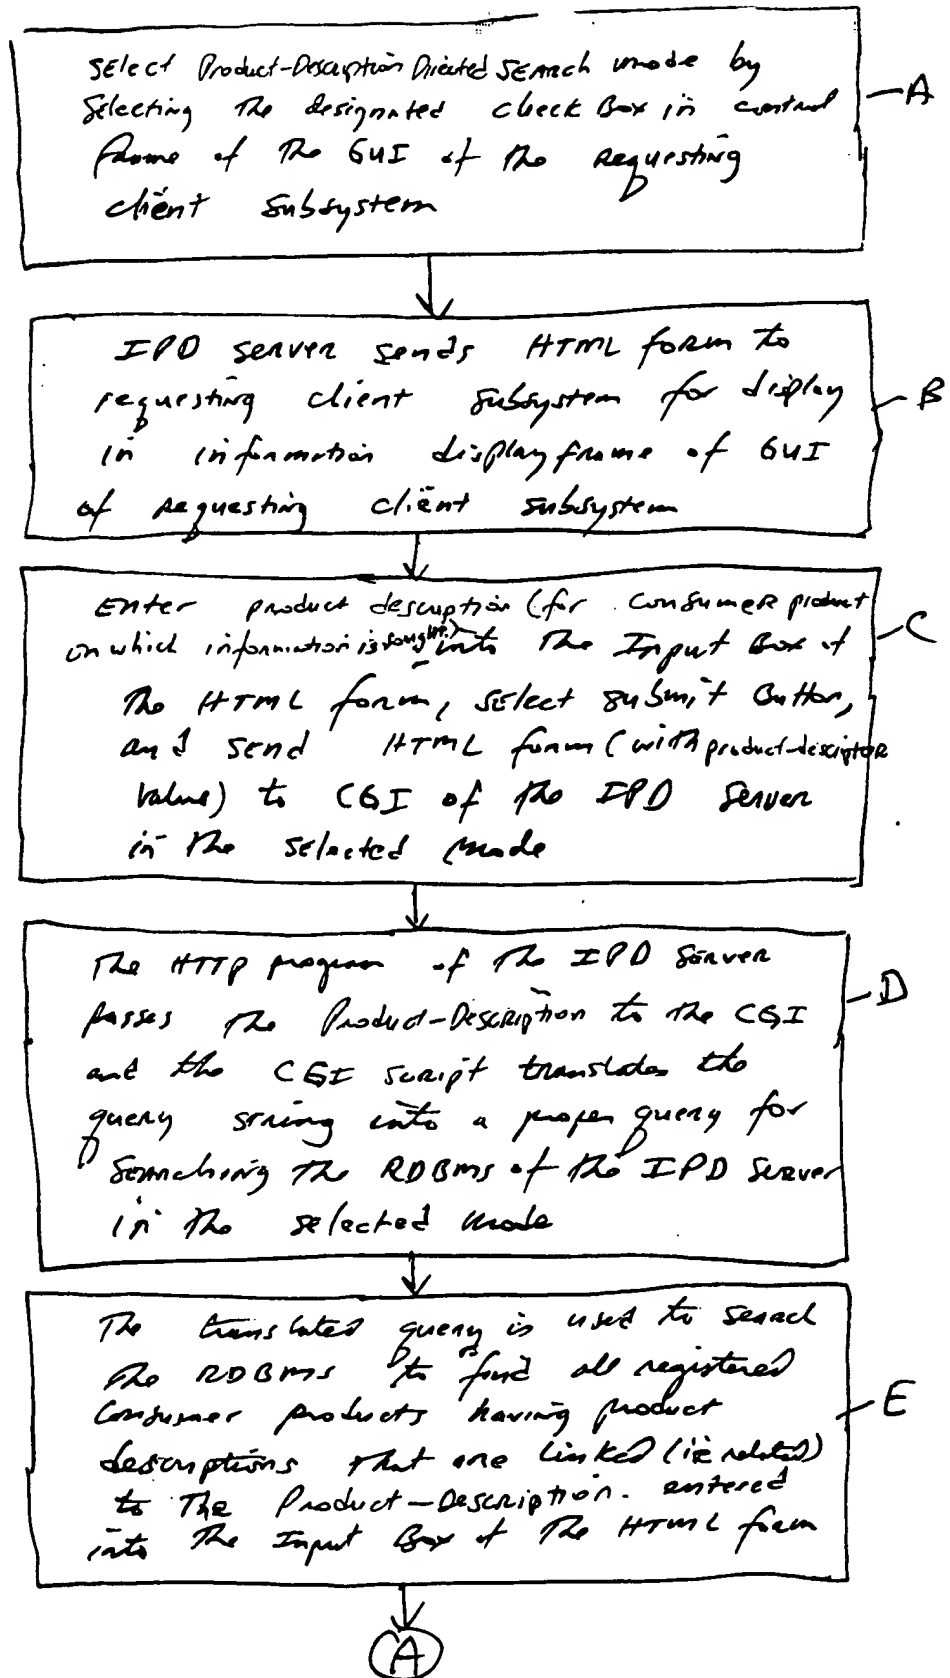 Select Product-Description Directed Search mode by
selecting the designated check Box in control
frame of the GUI of the requesting
client subsystem
A
IPD server sends HTML form to
requesting client subsystem for display
in information display frame of GUI
of requesting client subsystem
B
Enter product description (for consumer product
on which information is sought) into the Input Box of
the HTML form, select submit Button,
and send HTML form (with product-descriptor
value) to CGI of the IPD Server
in the selected mode
C
The HTTP program of the IPD Server
passes the Product-Description to the CGI
and the CGI script translates the
query string into a proper query for
searching the RDBMS of the IPD Server
in the selected mode
D
The translated query is used to search
the RDBMS to find all registered
consumer products having product
descriptions that are linked (ie related)
to the Product-Description. entered
into the Input Box of the HTML form
E
A